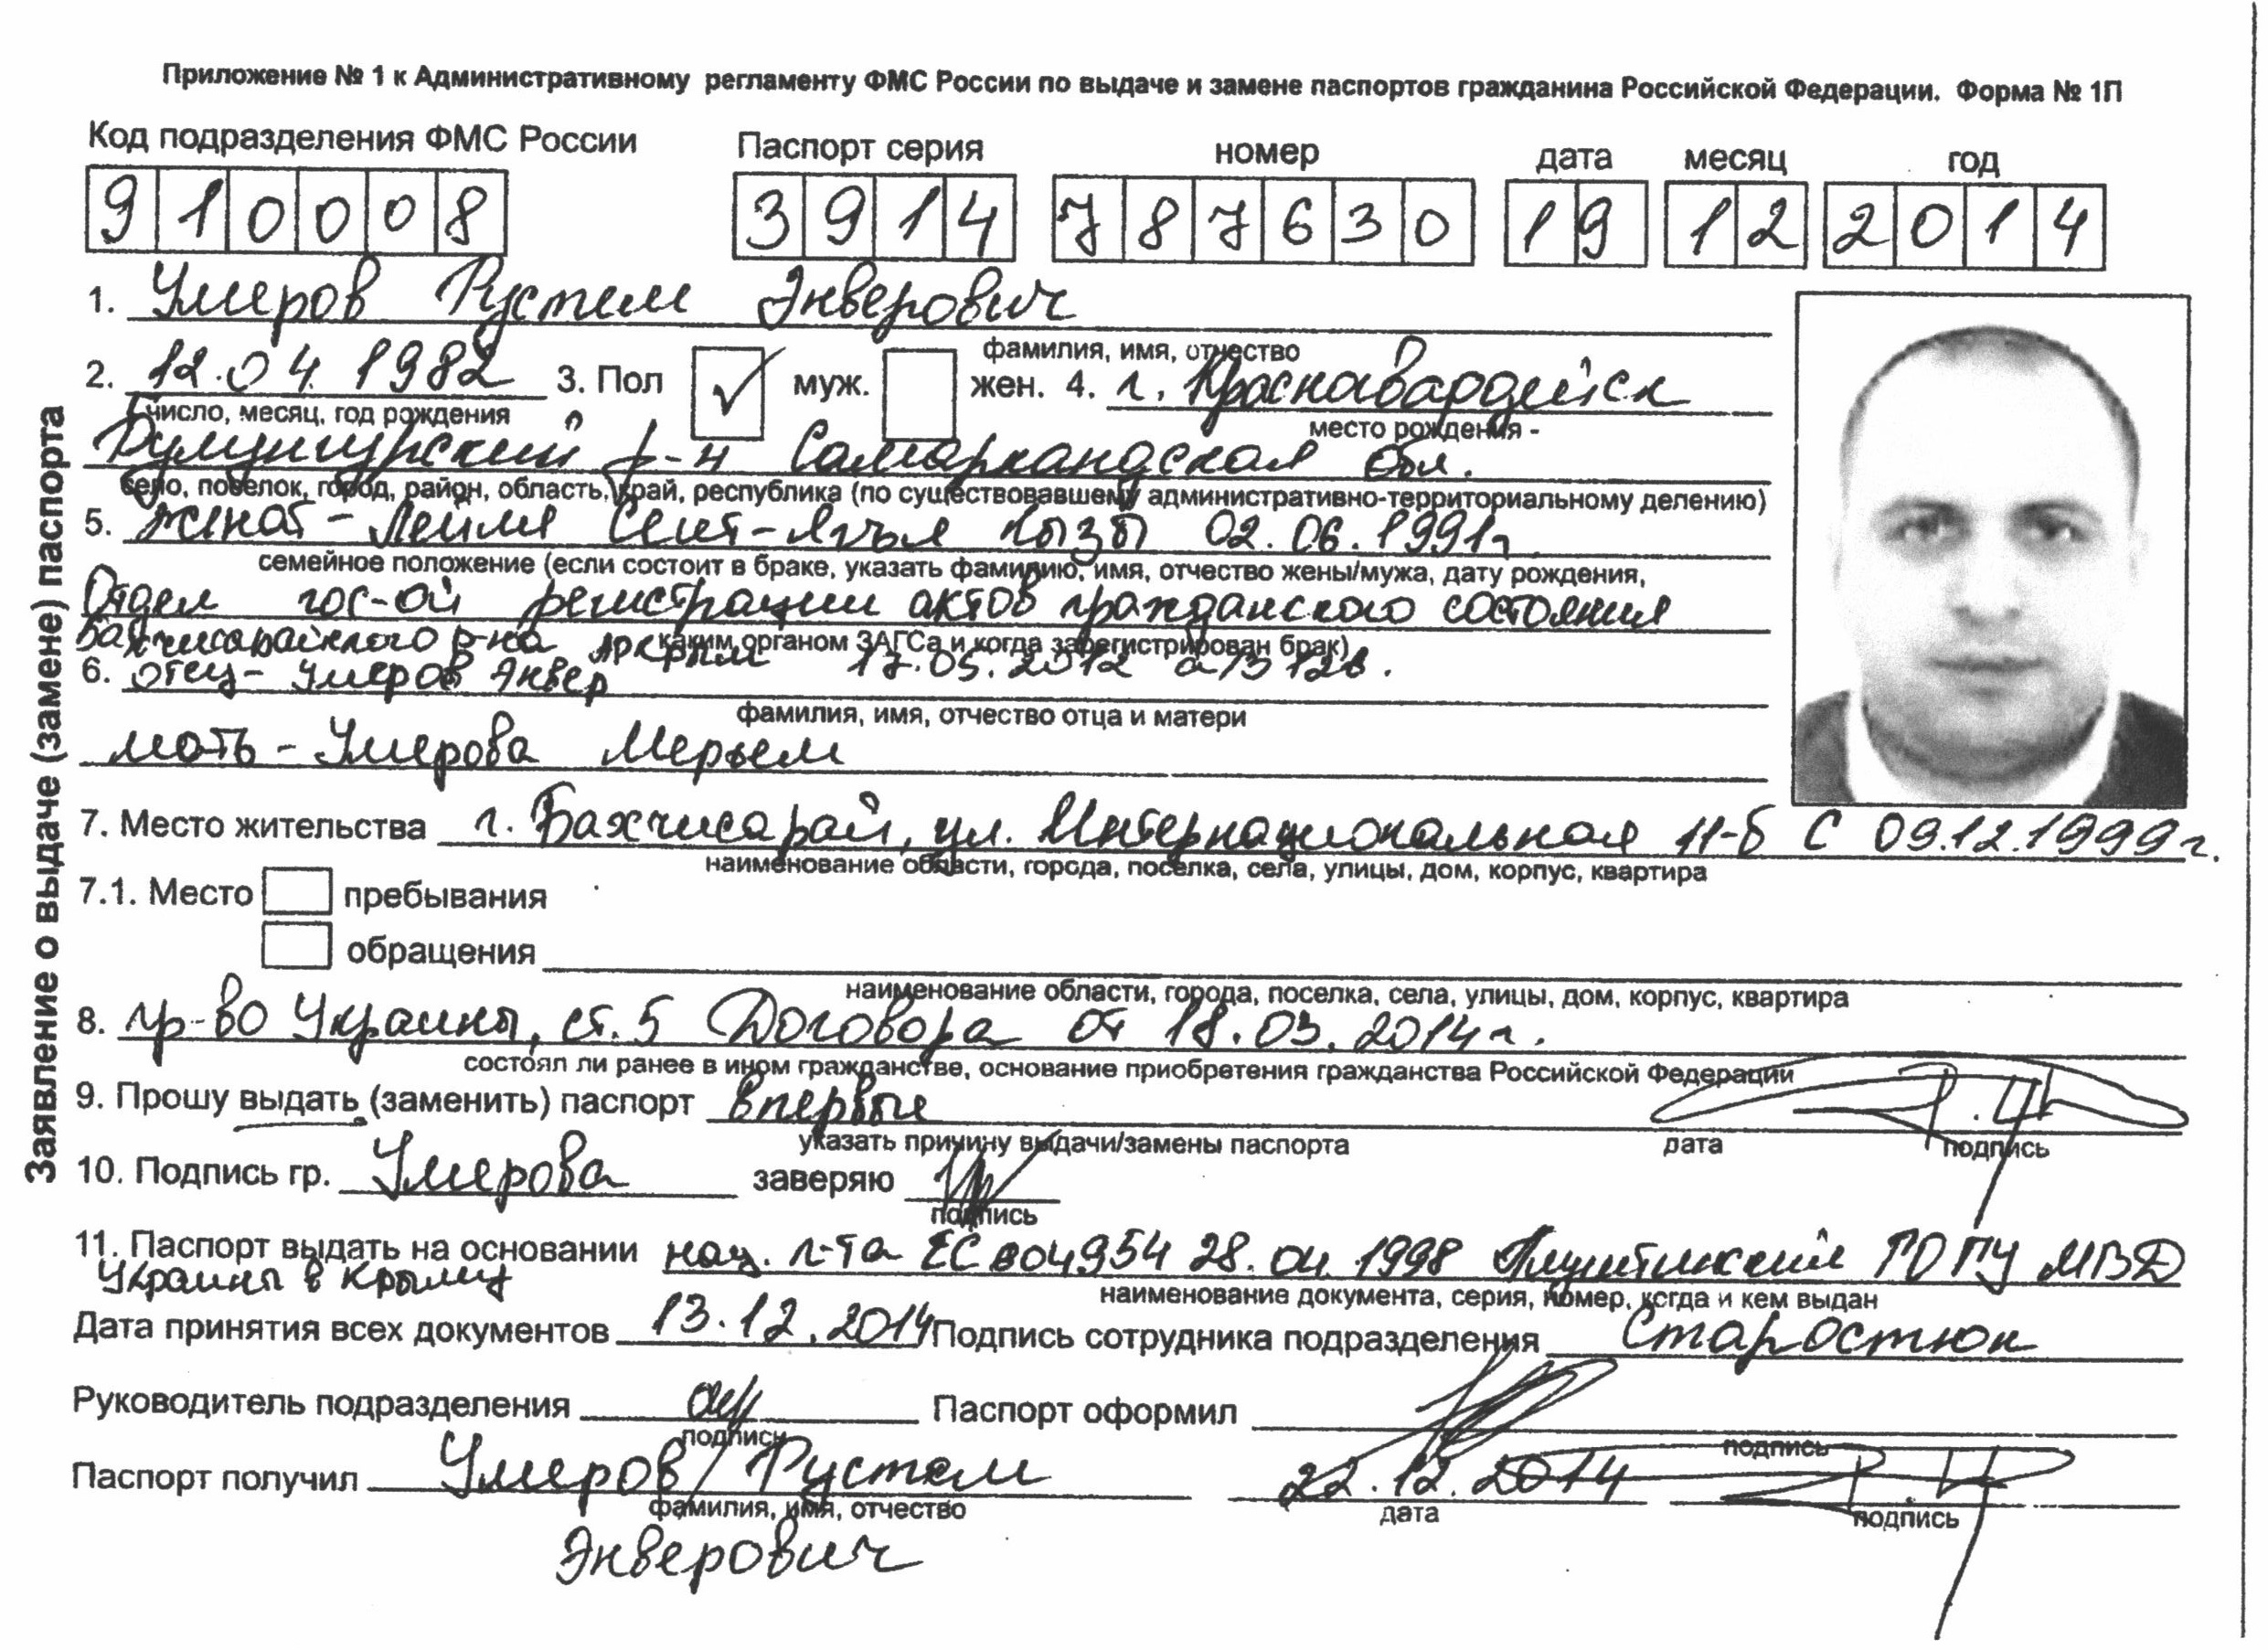 Приложение № 1 к Административному регламенту ФМС России по выдаче и замене паспортов гражданина Российской Федерации. Форма № 1П
Код подразделения ФМС России Паспорт серия номер дата месяц год
910008 3914 787630 19 12 2014
1. Умеров Рустем Энверович
фамилия, имя, отчество
2. 12.04.1982 3. Пол ✓ муж. жен. 4. г. Красногвардейск
число, месяц, год рождения место рождения -
р-н Самаркандская обл.
село, поселок, город, район, область, край, республика (по существовавшему административно-территориальному делению)
5. женат - Лейля Сеит-Ягъя кызы 02.06.1991г
семейное положение (если состоит в браке, указать фамилию, имя, отчество жены/мужа, дату рождения,
Отдел гос-ой регистрации актов гражданского состояния
каким органом ЗАГСа и когда зарегистрирован брак)
Бахчисарайского р-на АРКрым 17.05.2012 а/з 126.
6. отец - Умеров Энвер
фамилия, имя, отчество отца и матери
мать - Умерова Мерьем
7. Место жительства г. Бахчисарай, ул. Интернациональная 11-б С 09.12.1999г.
наименование области, города, поселка, села, улицы, дом, корпус, квартира
7.1. Место пребывания
обращения
наименование области, города, поселка, села, улицы, дом, корпус, квартира
8. гр-во Украины, ст. 5 Договора от 18.03.2014г.
состоял ли ранее в ином гражданстве, основание приобретения гражданства Российской Федерации
9. Прошу выдать (заменить) паспорт впервые
указать причину выдачи/замены паспорта дата подпись
10. Подпись гр. Умерова заверяю
подпись
11. Паспорт выдать на основании нац. п-та ЕС 804954 28.04.1998 Алуштинский ГОПУ МВД
Украины в Крыму
наименование документа, серия, номер, когда и кем выдан
Дата принятия всех документов 13.12.2014 Подпись сотрудника подразделения Старостюк
Руководитель подразделения Паспорт оформил
подпись подпись
Паспорт получил Умеров Рустем 22.12.2014
фамилия, имя, отчество дата подпись
Энверович
Заявление о выдаче (замене) паспорта